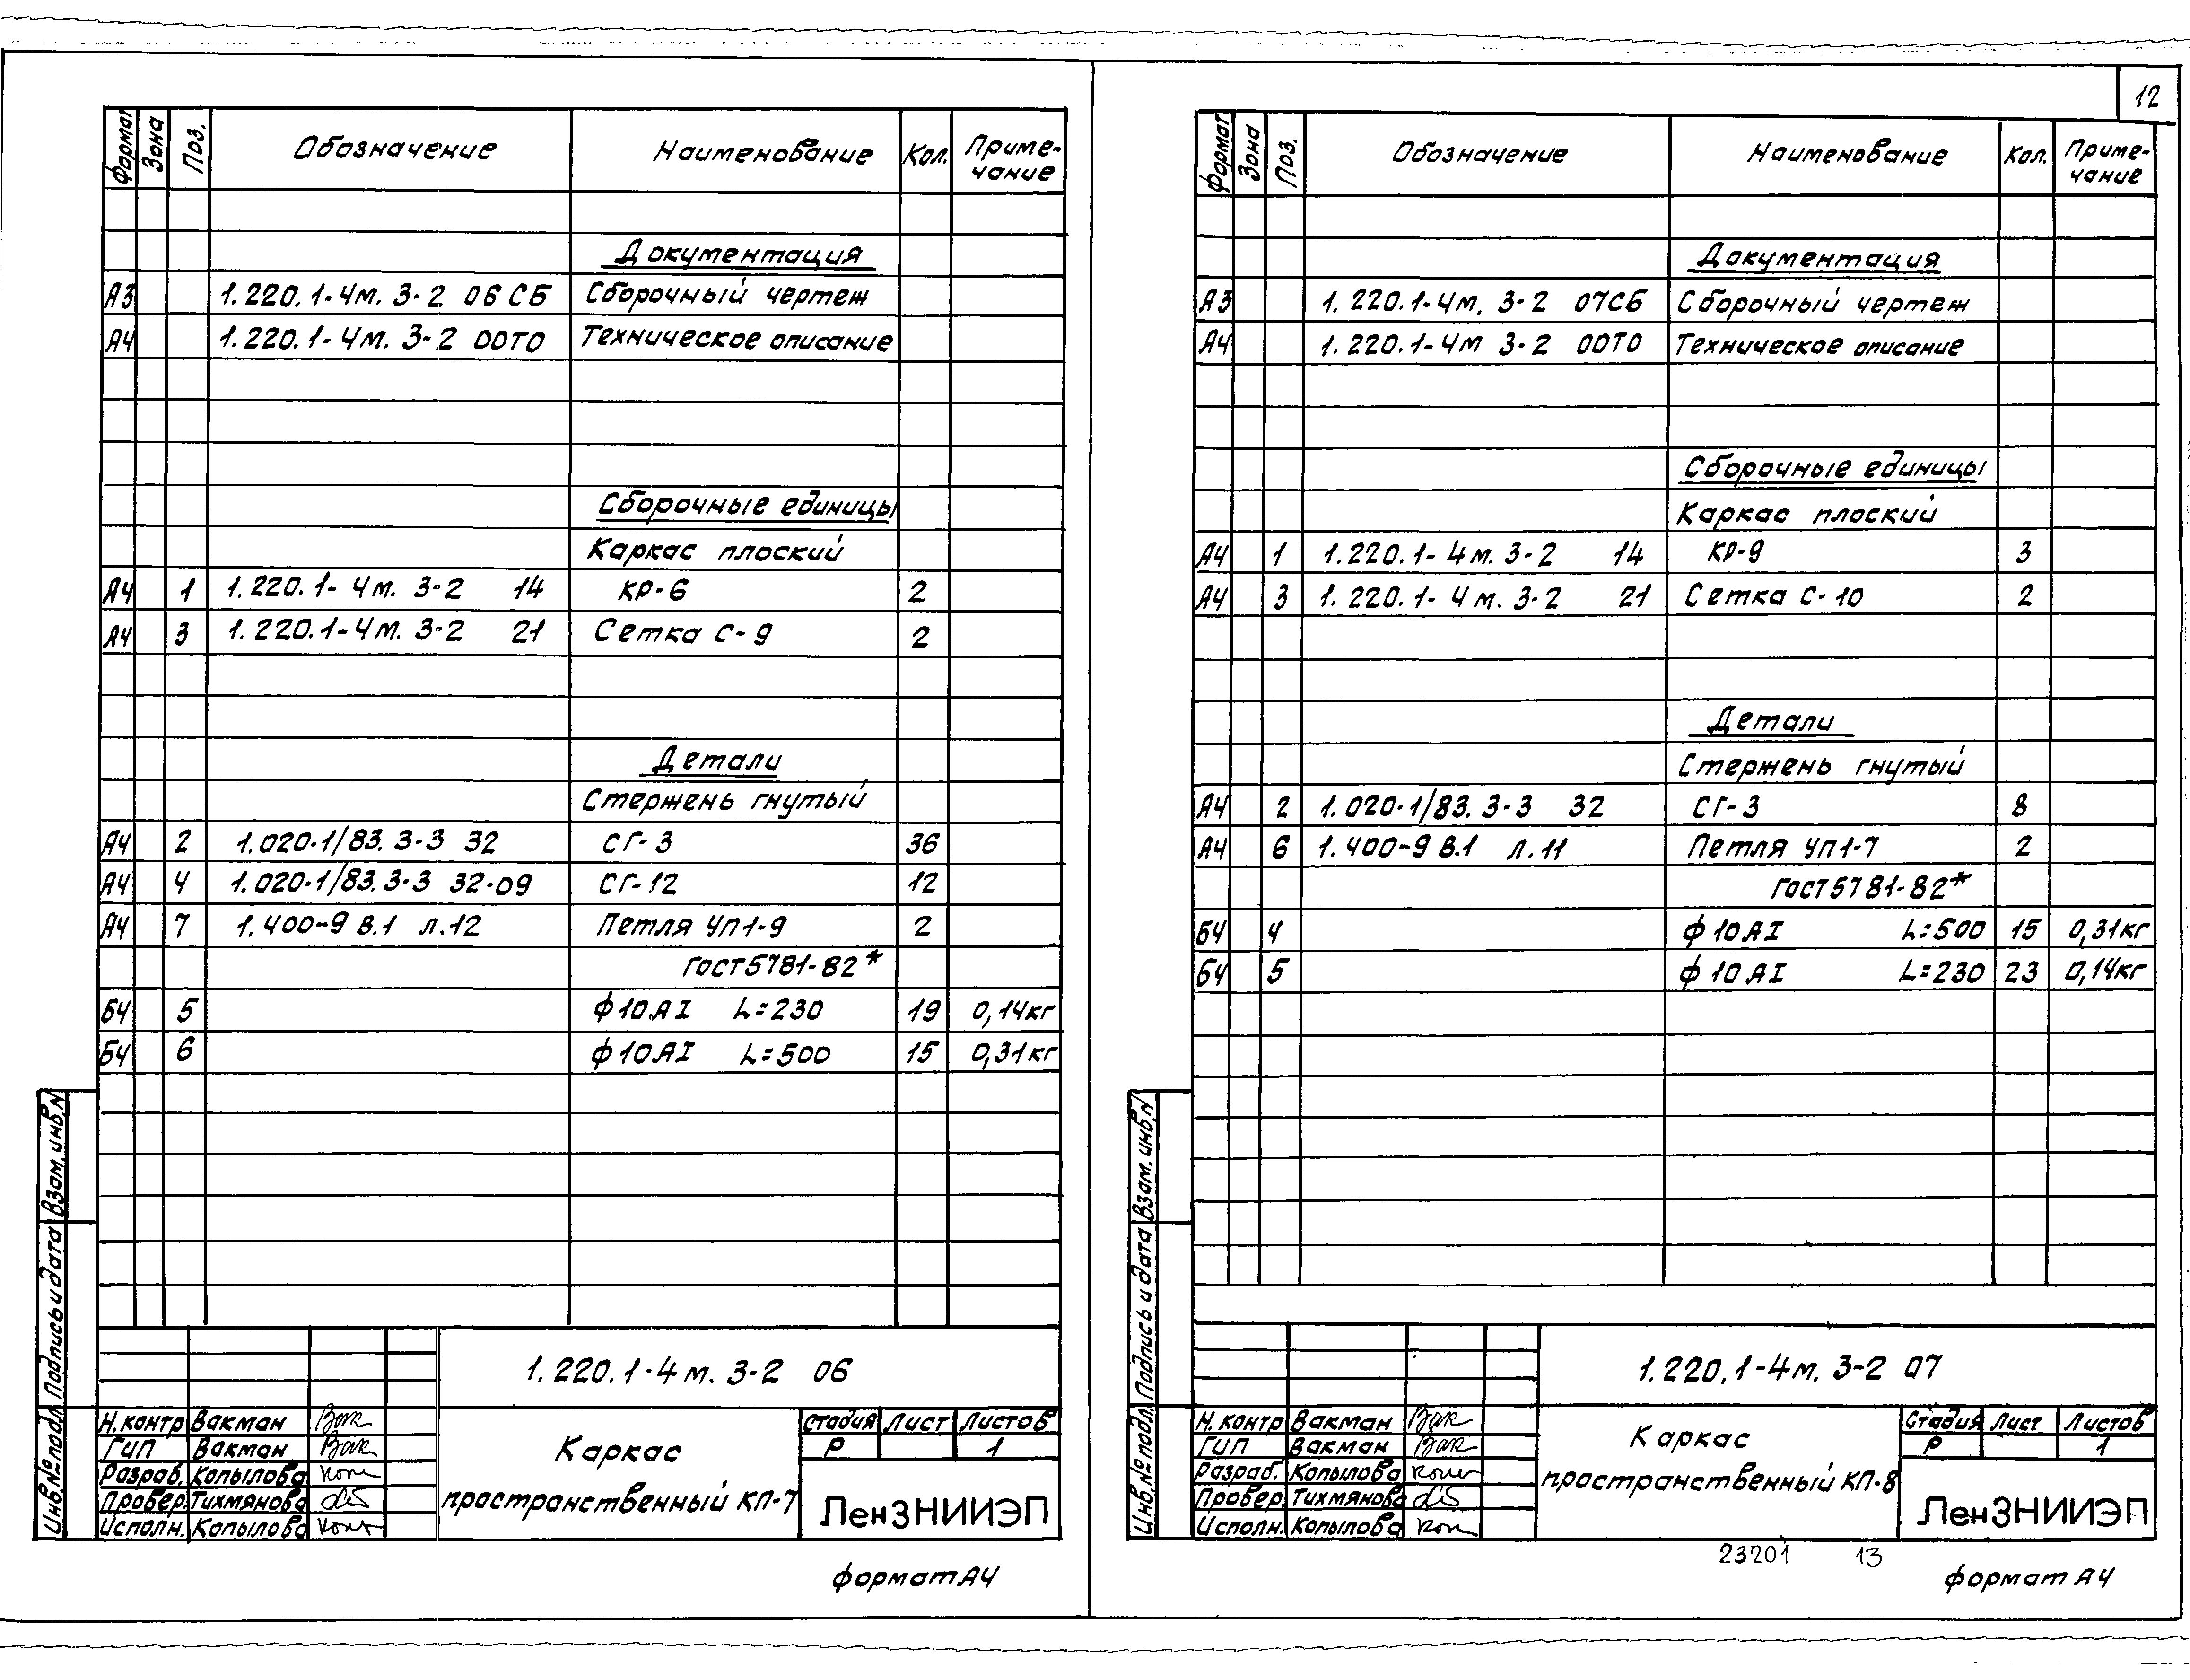 12
Формат Зона Поз. Обозначение Наименование Кол. Приме-
чание
Документация
А3 1.220.1-4м. 3-2 06СБ Сборочный чертеж
А4 1.220.1-4м. 3-2 00ТО Техническое описание
Сборочные единицы
Каркас плоский
А4 1 1.220.1-4м. 3-2 14 КР-6 2
А4 3 1.220.1-4м. 3-2 21 Сетка С-9 2
Детали
Стержень гнутый
А4 2 1.020-1/83. 3-3 32 СГ-3 36
А4 4 1.020-1/83. 3-3 32-09 СГ-12 12
А4 7 1.400-9 В.1 л.12 Петля УП1-9 2
ГОСТ 5781-82*
БЧ 5 ф10АI L=230 19 0,14кг
БЧ 6 ф10АI L=500 15 0,31кг
Взам. инв. N
Подпись и дата
Инв. № подл.
1.220.1-4м. 3-2 06
Н.контр Вакман
ГИП Вакман
Разраб. Копылова
Провер. Тихмянова
Исполн. Копылова
Каркас
пространственный КП-7
Стадия Лист Листов
Р 1
ЛенЗНИИЭП
формат А4
Формат Зона Поз. Обозначение Наименование Кол. Приме-
чание
Документация
А3 1.220.1-4м. 3-2 07СБ Сборочный чертеж
А4 1.220.1-4м 3-2 00ТО Техническое описание
Сборочные единицы
Каркас плоский
А4 1 1.220.1-4м. 3-2 14 КР-9 3
А4 3 1.220.1-4м. 3-2 21 Сетка С-10 2
Детали
Стержень гнутый
А4 2 1.020-1/83. 3-3 32 СГ-3 8
А4 6 1.400-9 В.1 л.11 Петля УП1-7 2
ГОСТ 5781-82*
БЧ 4 ф10АI L=500 15 0,31кг
БЧ 5 ф10АI L=230 23 0,14кг
Взам. инв. N
Подпись и дата
Инв. № подл.
1.220.1-4м. 3-2 07
Н.контр Вакман
ГИП Вакман
Разраб. Копылова
Провер. Тихмянова
Исполн. Копылова
Каркас
пространственный КП-8
Стадия Лист Листов
Р 1
ЛенЗНИИЭП
23201 13
формат А4